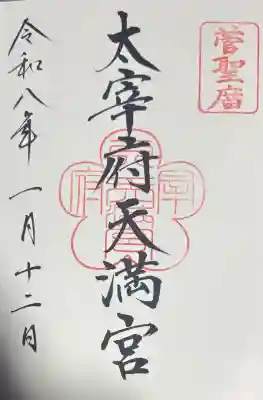 菅聖廟
太宰府天満宮
令和八年一月十二日